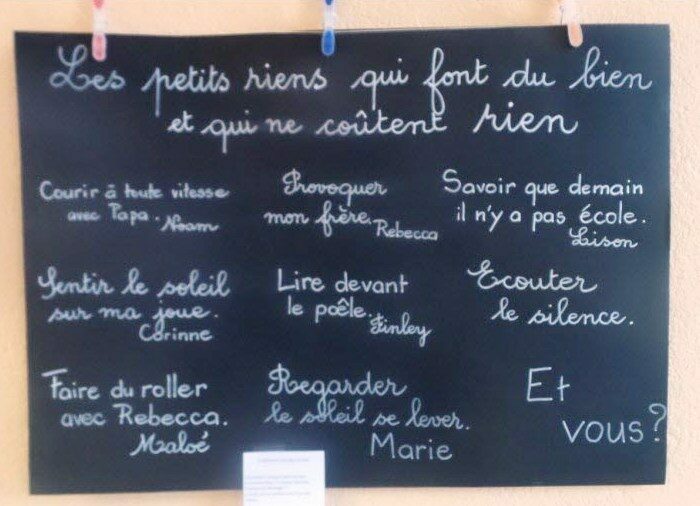 Les petits riens qui font du bien
et qui ne coûtent rien
Courir à toute vitesse
avec Papa. Noam
Provoquer
mon frère. Rebecca
Savoir que demain
il n'y a pas école.
Lison
Sentir le soleil
sur ma joue.
Corinne
Lire devant
le poêle. Finley
Ecouter
le silence.
Faire du roller
avec Rebecca.
Maloé
Regarder
le soleil se lever.
Marie
Et
vous?